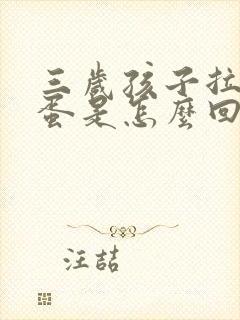 三歲孩子拉
蛋是怎麼回
汪喆